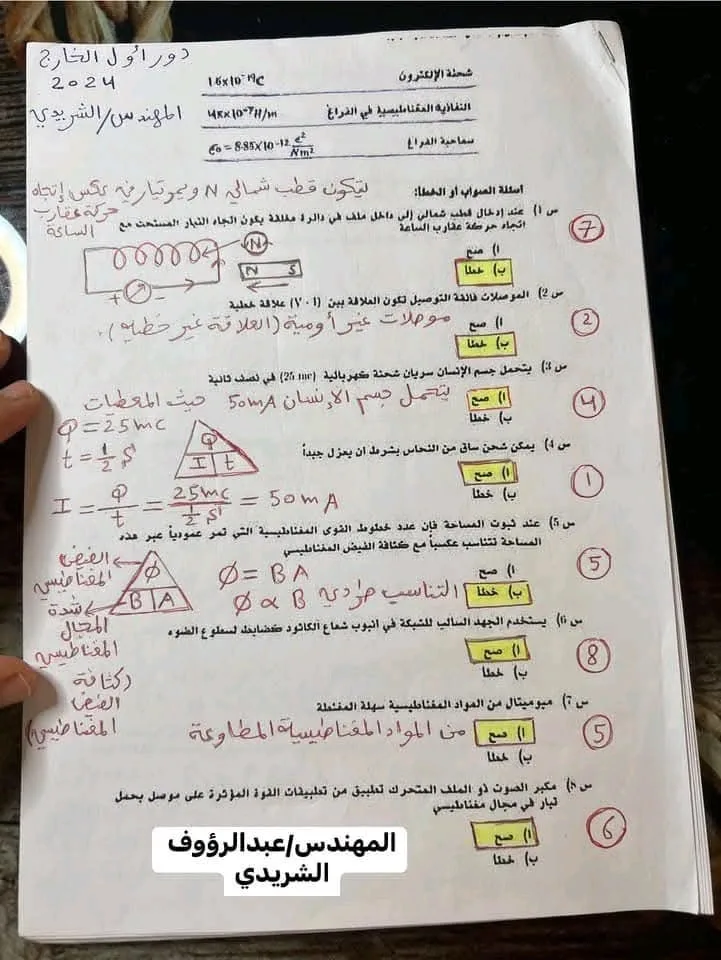 دور أول الخارج
2024
المهندس/الشريدي
شحنة الإلكترون 1.6x10⁻¹⁹C
النفاذية المغناطيسية في الفراغ 4πx10⁻⁷H/m
سماحية الفراغ ε0 = 8.85x10⁻¹² c²/Nm²
اسئلة الصواب أو الخطأ:
ليتكون قطب شمالي N ويمر تيار في عكس إتجاه
حركة عقارب
الساعة
س 1) عند إدخال قطب شمالي إلى داخل ملف في دائرة مغلقة يكون اتجاه التيار المستحث مع
اتجاه حركة عقارب الساعة
7
أ) صح
ب) خطأ
N
N S
+ -
س 2) الموصلات فائقة التوصيل تكون العلاقة بين (V ، I) علاقة خطية
2
أ) صح
ب) خطأ
موصلات غير أومية (العلاقة غير خطية).
س 3) يتحمل جسم الإنسان سريان شحنة كهربائية (25 mc) في نصف ثانية
4
أ) صح
ب) خطأ
يتحمل جسم الإنسان 50mA حيث المعطيات
Q = 25mc
t = 1/2 S
Q
I t
I = Q/t = 25mc / 1/2 S = 50mA
س 4) يمكن شحن ساق من النحاس بشرط ان يعزل جيداً
1
أ) صح
ب) خطأ
س 5) عند ثبوت المساحة فإن عدد خطوط القوى المغناطيسية التي تمر عمودياً عبر هذه
المساحة تتناسب عكسياً مع كثافة الفيض المغناطيسي
5
أ) صح
ب) خطأ
Ø = BA
Ø α B التناسب طردي
Ø
B A
الفيض
المغناطيسي
شدة
المجال
المغناطيسي
(كثافة
الفيض
المغناطيسي)
س 6) يستخدم الجهد السالب للشبكة في انبوب شعاع الكاثود كضابط لسطوع الضوء
8
أ) صح
ب) خطأ
س 7) ميوميتال من المواد المغناطيسية سهلة المغنطة
5
أ) صح
ب) خطأ
من المواد المغناطيسية المطاوعة
س 8) مكبر الصوت ذو الملف المتحرك تطبيق من تطبيقات القوة المؤثرة على موصل يحمل
تيار في مجال مغناطيسي
6
أ) صح
ب) خطأ
المهندس/عبدالرؤوف
الشريدي